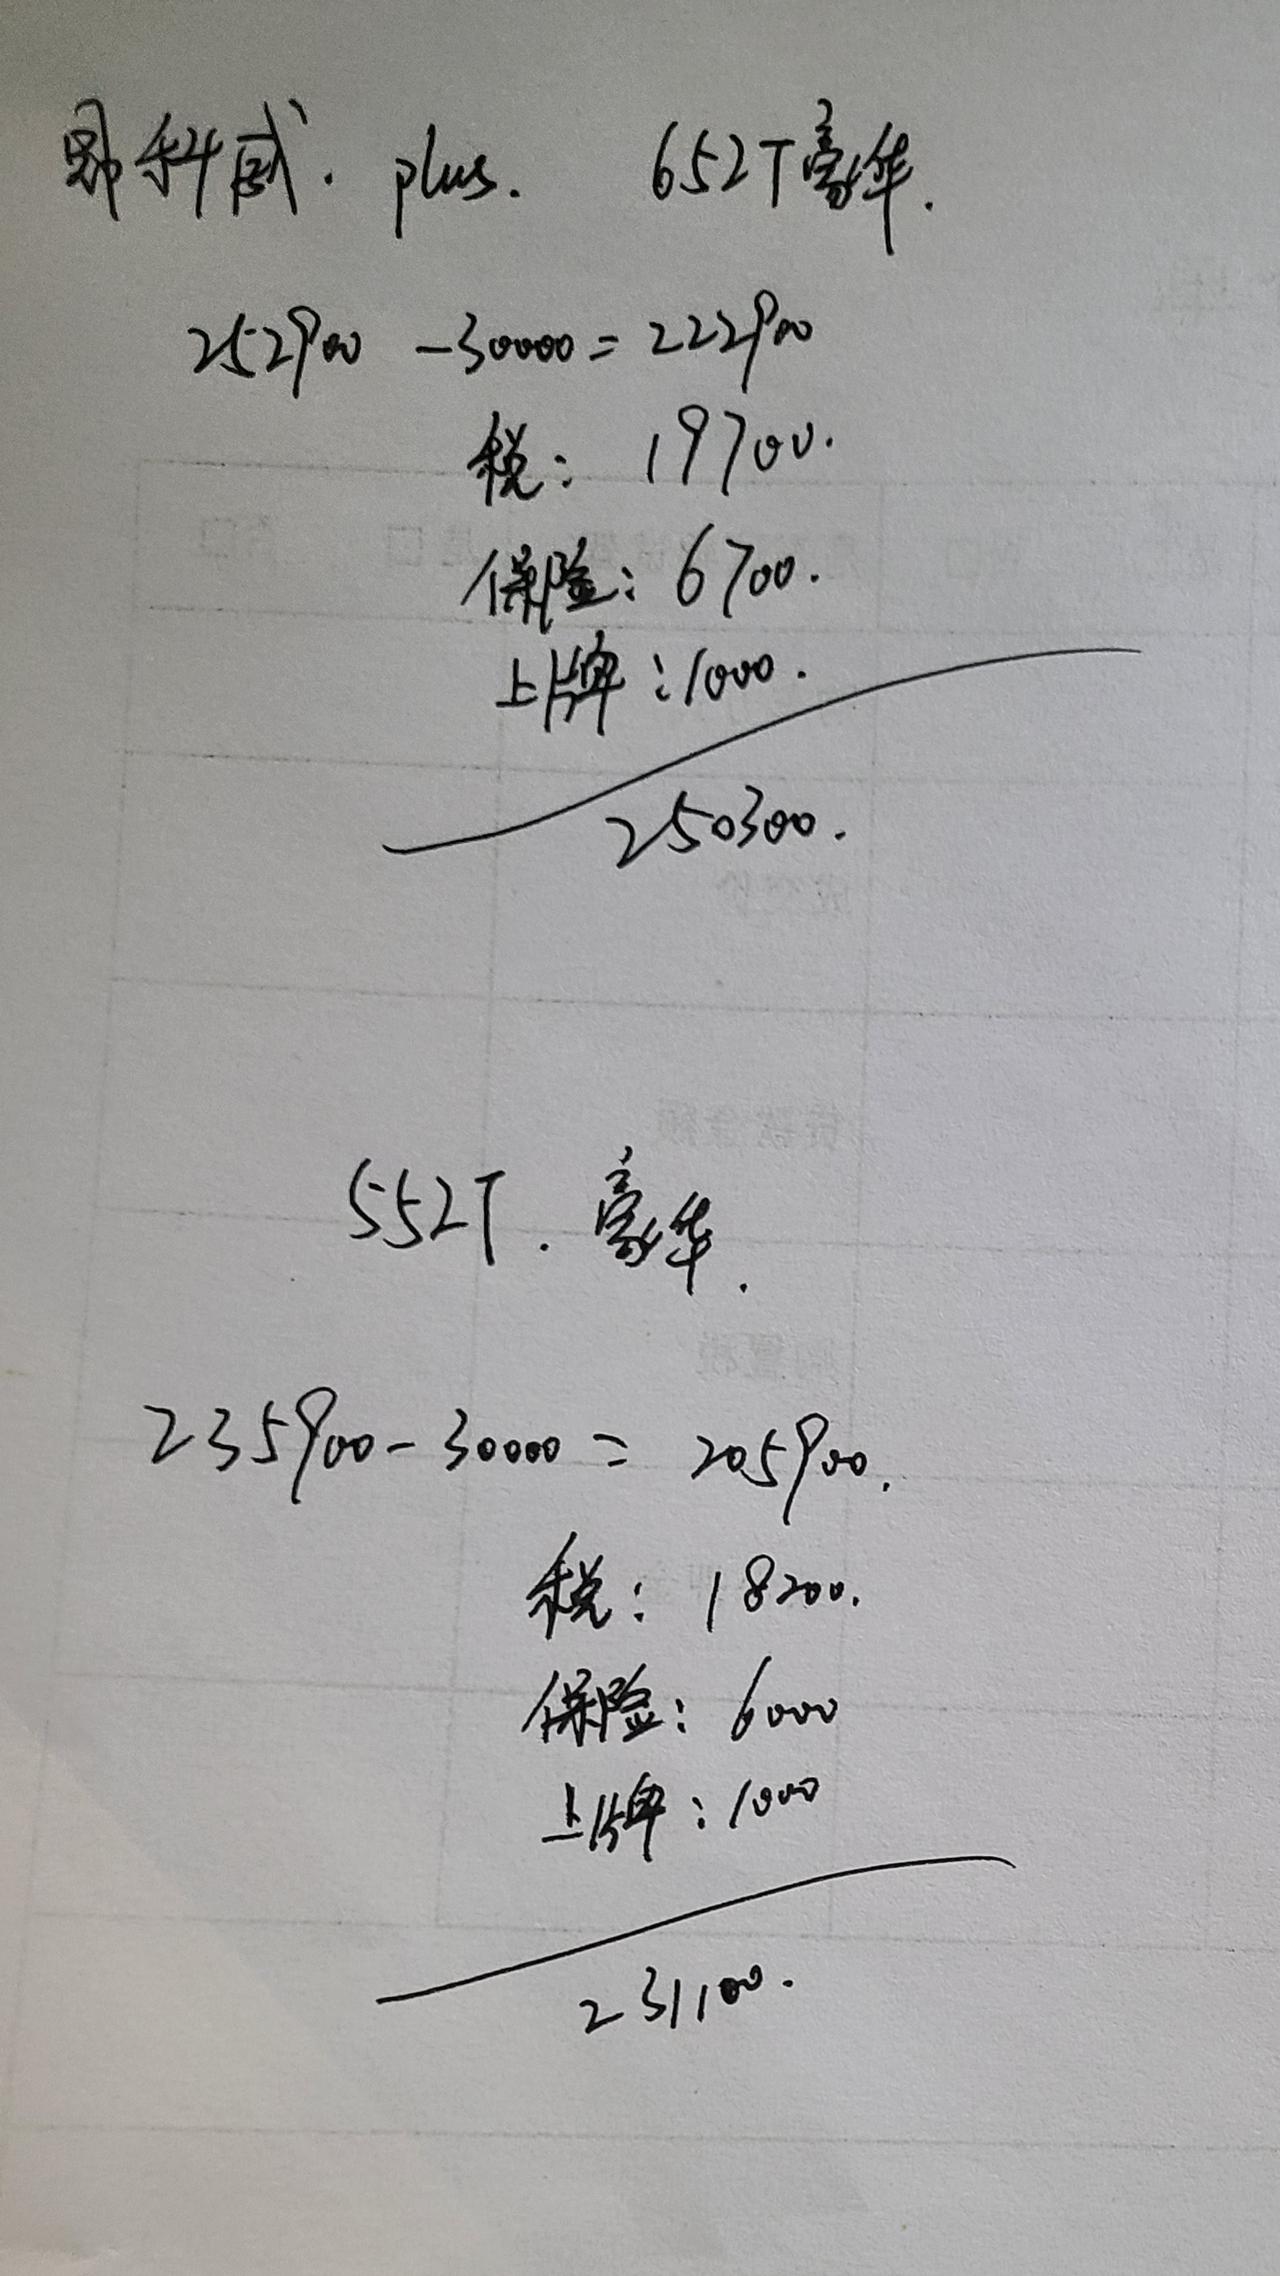 昂科威. plus. 652T豪华.
252900 -30000=222900
税: 19700.
保险: 6700.
上牌:1000.
250300.
成交价
贷款金额
552T. 豪华.
购置税
235900-30000= 205900.
税: 18200.
保险: 6000
上牌:1000
231100.